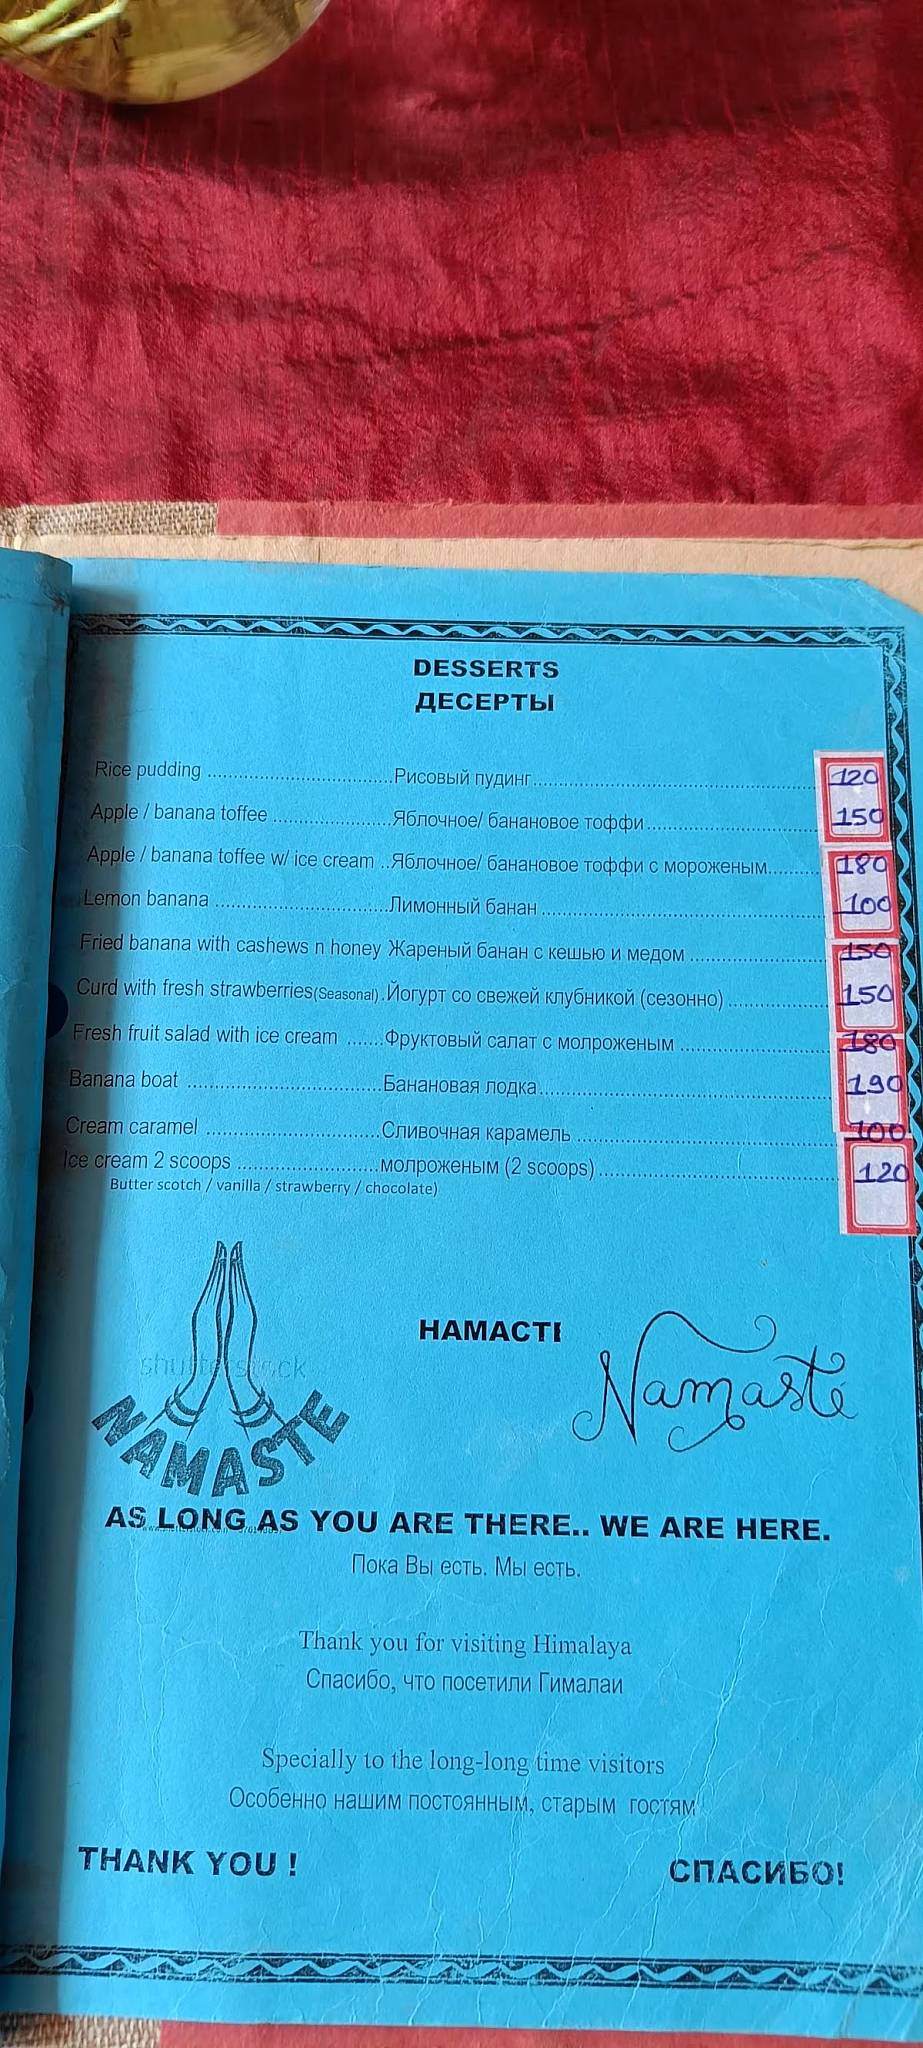 DESSERTS
ДЕСЕРТЫ
Rice pudding ..................................Рисовый пудинг.................................................... 120
Apple / banana toffee ......................Яблочное/ банановое тоффи............................... 150
Apple / banana toffee w/ ice cream ..Яблочное/ банановое тоффи с мороженым......... 180
Lemon banana ................................Лимонный банан .................................................. 100
Fried banana with cashews n honey Жареный банан с кешью и медом ........................ 150
Curd with fresh strawberries(Seasonal) .Йогурт со свежей клубникой (сезонно) ................. 150
Fresh fruit salad with ice cream .......Фруктовый салат с молроженым ........................... 180
Banana boat ...................................Банановая лодка................................................... 190
Cream caramel ................................Сливочная карамель ............................................ 100
Ice cream 2 scoops ..........................молроженым (2 scoops)......................................... 120
Butter scotch / vanilla / strawberry / chocolate)
shutterstock
NAMASTE
НАМАСТІ
Namasté
AS LONG AS YOU ARE THERE.. WE ARE HERE.
Пока Вы есть. Мы есть.
Thank you for visiting Himalaya
Спасибо, что посетили Гималаи
Specially to the long-long time visitors
Особенно нашим постоянным, старым гостям
THANK YOU !
СПАСИБО!